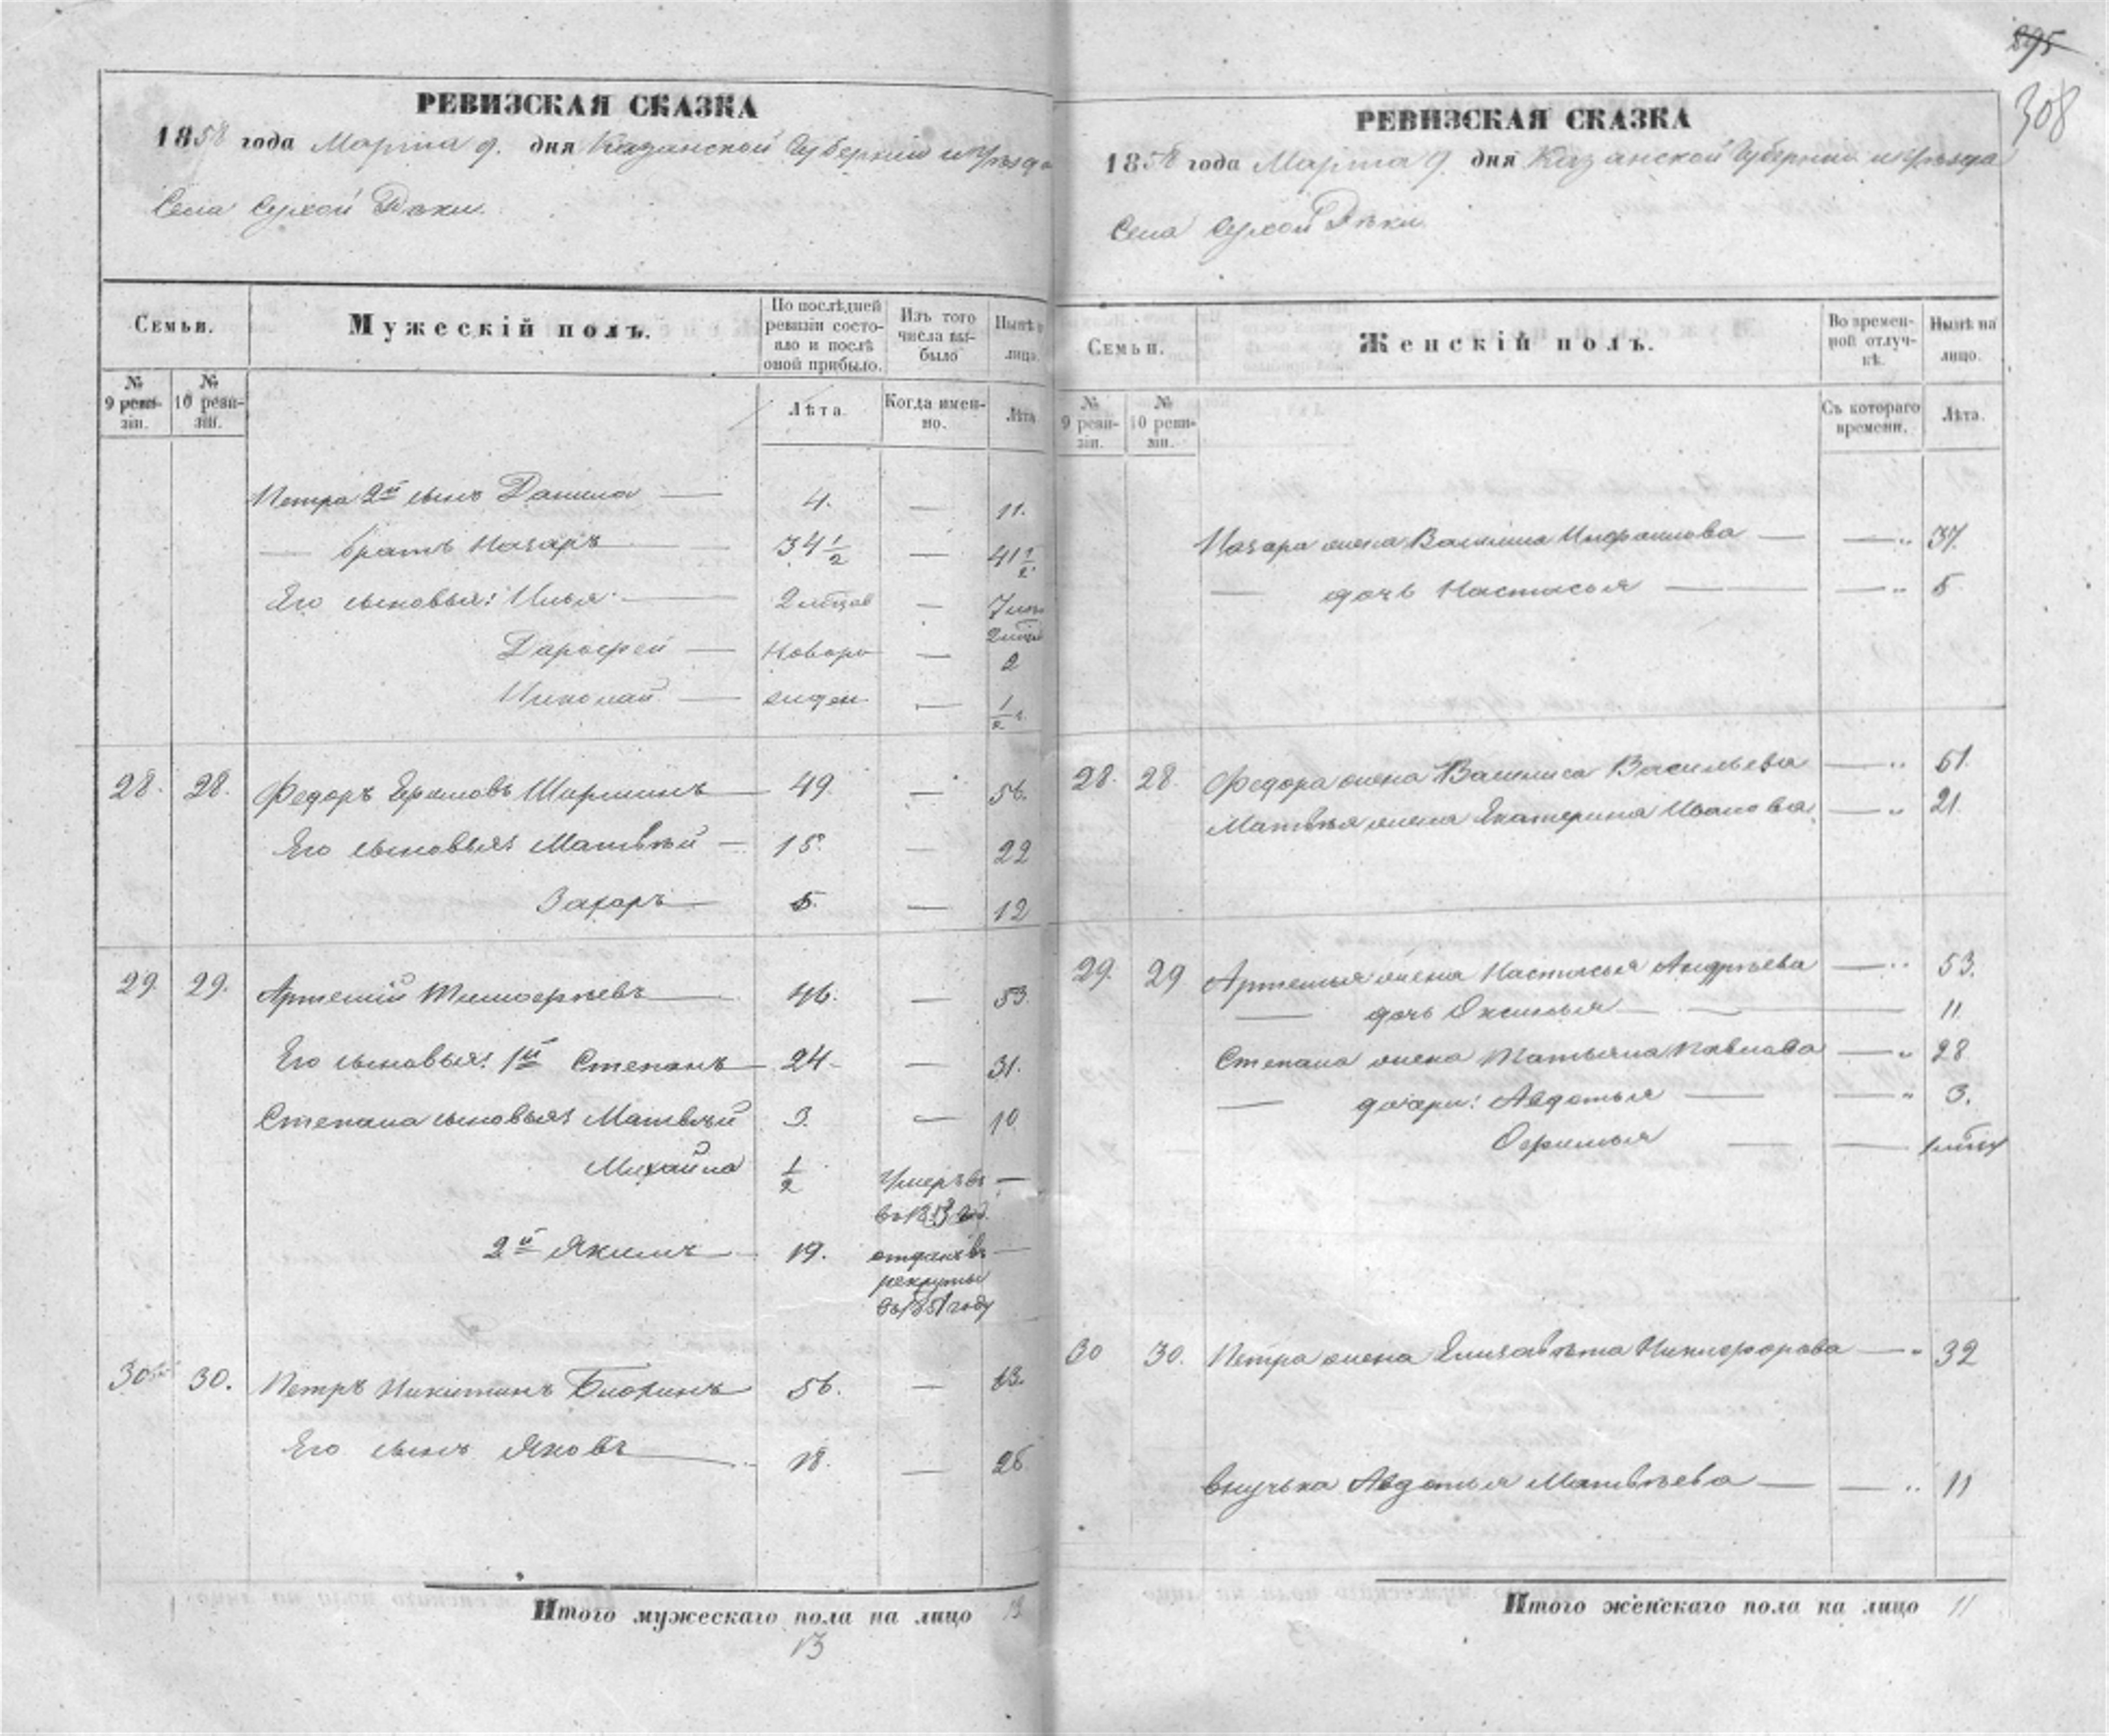 895
308
РЕВИЗСКАЯ СКАЗКА
1858 года Марта 9. дня Казанской Губерніи и Уѣзда
Села Сухой Рѣки.
Семьи.
Мужескій полъ.
По послѣдней ревизіи состояло и послѣ оной прибыло.
Изъ того числа выбыло
Нынѣ на лицо.
№ 9 ревизіи.
№ 10 ревизіи.
Лѣта.
Когда именно.
Лѣта
Петра 2й сынъ Данила — 4. — 11.
— братъ Назаръ — 34 1/2 — 41 1/2.
Его сыновья: Илья — 2 мѣсяц — 7 лѣт 2 мѣс
Дарофей — новоро — 2
Николай — жден — 1/2 г.
28. 28. Федоръ Ермовъ Шаршинъ — 49. — 56.
Его сыновья: Матвѣй — 15. — 22
Захаръ — 5. — 12
29. 29. Артемій Тимофѣевъ — 46. — 53.
Его сыновья: 1й Степанъ — 24 — 31.
Степана сыновья: Матвѣй 3. — 10
Михайла 1/2 Умеръ въ —
въ 1853 год.
2й Якимъ — 19. отданъ въ —
рекруты
въ 1851 году
30 30. Петръ Никитинъ — 56. — 63.
Его сынъ Яковъ — 18. — 25
Итого мужескаго пола на лицо 13
13
РЕВИЗСКАЯ СКАЗКА
1858 года Марта 9. дня Казанской Губерніи и Уѣзда
Села Сухой Рѣки
Семьи.
Женскій полъ.
Во временной отлучкѣ.
Нынѣ на лицо.
№ 9 ревизіи.
№ 10 ревизіи.
Съ котораго времени.
Лѣта.
Назара жена Василиса — — " 37.
— дочь Настасья — — " 5
28. 28. Федора жена Василиса Васильева — " 51.
Матвѣя жена Екатерина Иванова — " 21.
29. 29 Артемья жена Настасья Андрѣева — " 53.
— дочь Оксинья — — 11
Степана жена Татьяна Павлова — " 28
— дочери: Авдотья — — " 3.
Офимья — — 1 мѣсяц
30 30. Петра жена Елизавѣта Никифорова — " 32
внучька Авдотья Матвѣева — — " 11
Итого женскаго пола на лицо 11